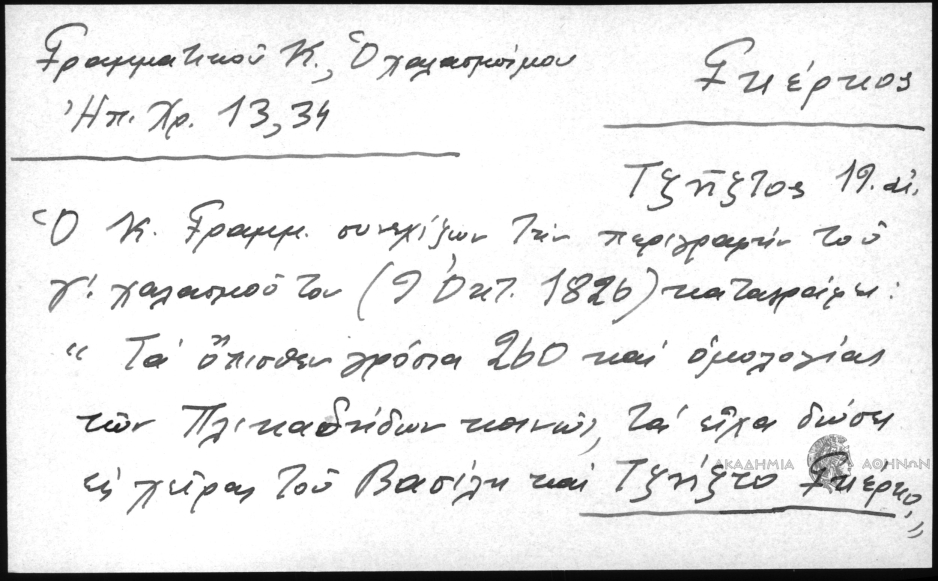 Γραμματικοῦ Κ., Ὁ χαλασμός μου
Ἠπ. Χρ. 13, 34
Γκέρκος
Τζήζτος 19. αἰ.
Ὁ Κ. Γραμμ. συνεχίζων τὴν περιγραφὴν τοῦ
γ΄. χαλασμοῦ του (9 Ὀκτ. 1826) καταγράφει:
"Τὰ ὄπισθεν γρόσια 260 καὶ ὁμολογίας
τῶν Πλικαδιτῶν κοινῶς, τὰ εἶχα δώσει
εἰς χεῖρας τοῦ Βασίλη καὶ Τζήζτο Γκέρκο"
ΑΚΑΔΗΜΙΑ ΑΘΗΝΩΝ